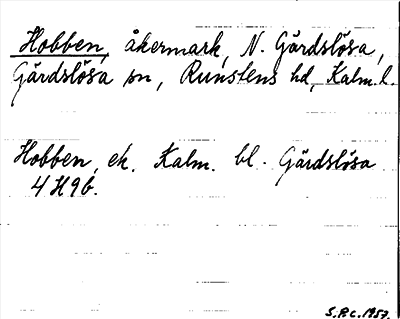 Hobben, åkermark, N. Gärdslösa,
Gärdslösa sn, Runstens hd, Kalm. l.
Hobben, ek. Kalm. bl. Gärdslösa
4 H 9 b.
S.P.C. 1957.